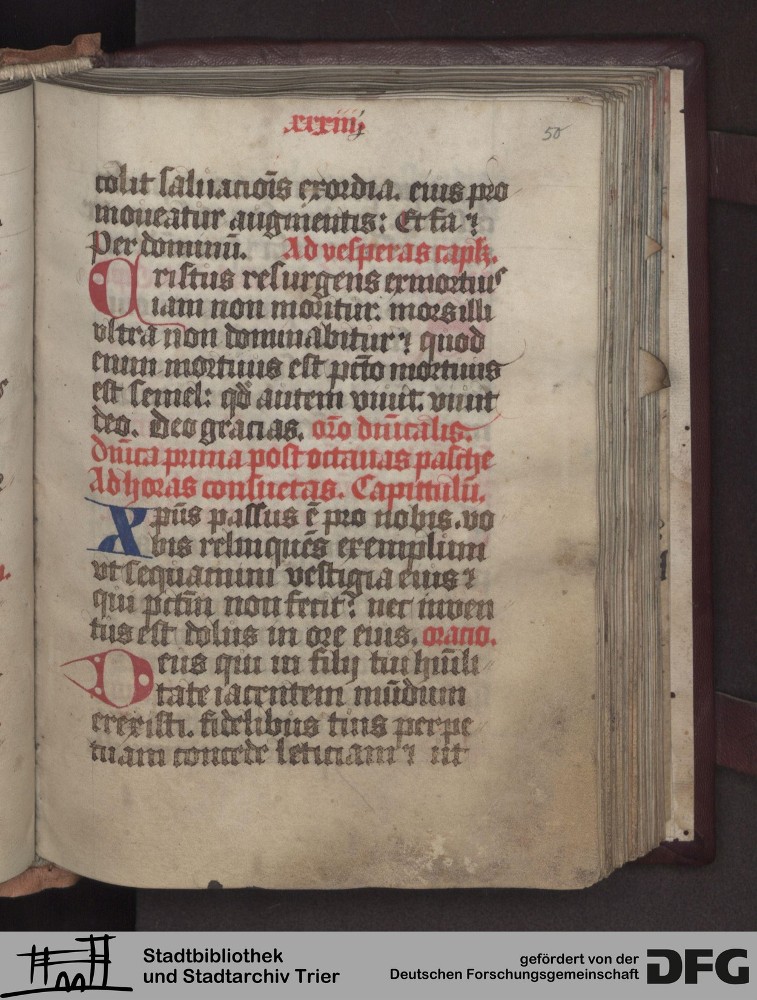 xxxiiij
50
colit saluacio&#772;is exordia. eius pro
moueatur augmentis: Et fa ⁊
Per dominu&#772;. Ad vesperas capl&#772;.
Cristus resurgens ex mortuis
iam non moritur: mors illi
vltra non dominabitur ⁊ quod
enim mortuus est pcto&#772; mortuus
est semel: qd&#772; autem viuit. viuit
deo. Deo gracias. oro&#772; dn&#772;icalis.
Dn&#772;ica prima post octauas pasche
Ad horas consuetas. Capittulu&#772;.
Xpu&#772;s passus e&#772; pro nobis. vo
bis relinque&#772;s exemplum
vt sequamini vestigia eius ⁊
qui pctm&#772; non fecit: nec inuen
tus est dolus in ore eius. oracio.
Deus qui in filij tui hu&#772;ili
tate iacentem mu&#772;dum
erexisti. fidelibus tuis perpe
tuam concede leticiam ⁊ ut
Stadtbibliothek
und Stadtarchiv Trier
gefördert von der
Deutschen Forschungsgemeinschaft
DFG